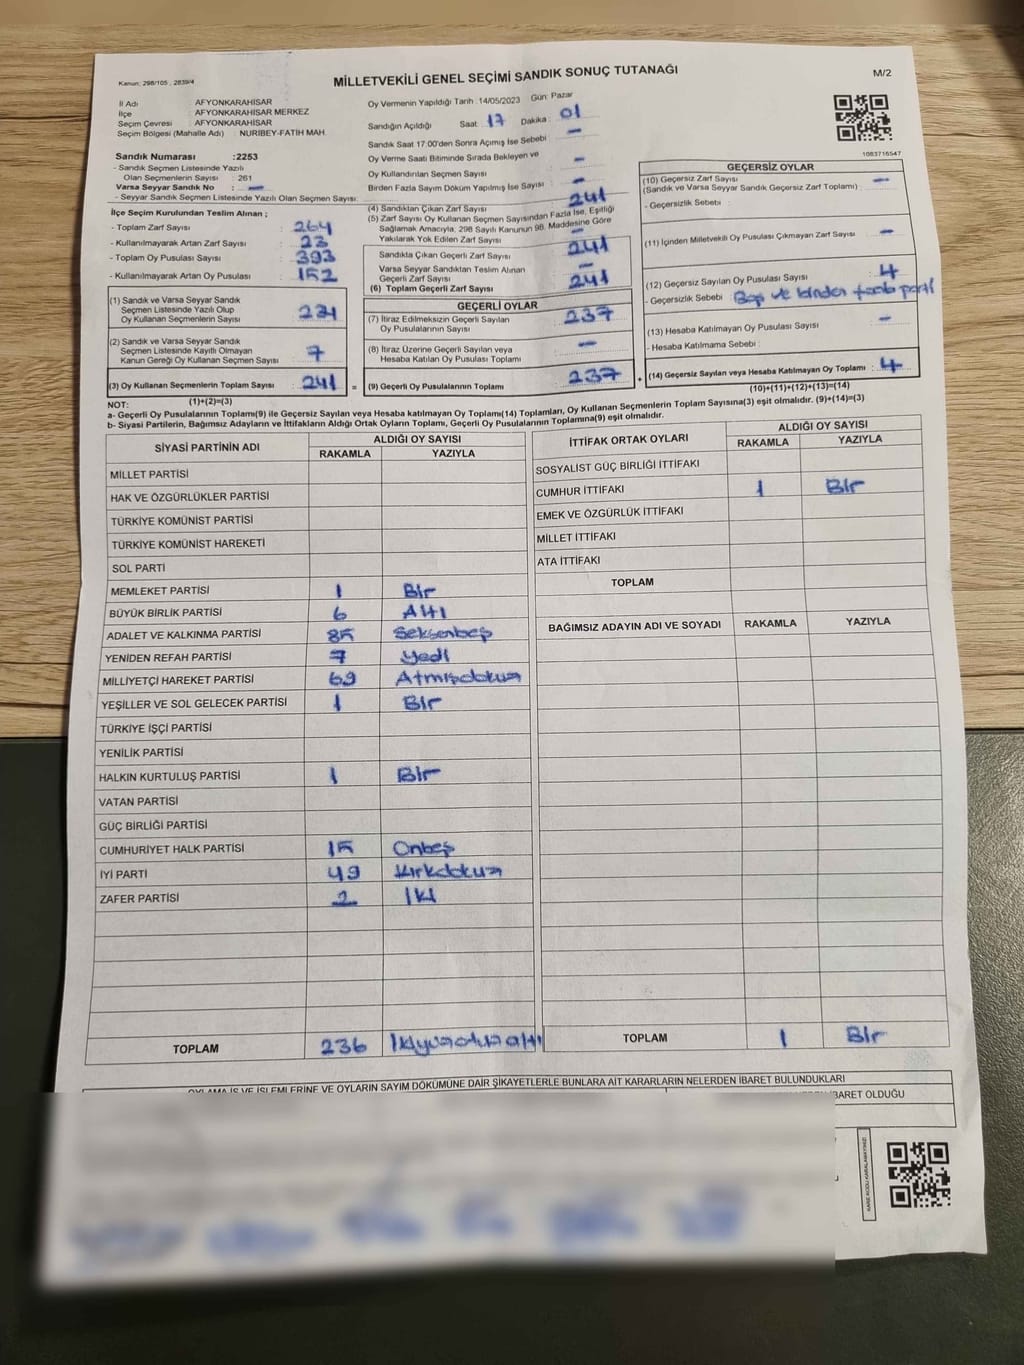 Kanun: 298/105 , 2839/4
MİLLETVEKİLİ GENEL SEÇİMİ SANDIK SONUÇ TUTANAĞI
M/2
İl Adı AFYONKARAHİSAR
İlçe AFYONKARAHİSAR MERKEZ
Seçim Çevresi : AFYONKARAHİSAR
Seçim Bölgesi (Mahalle Adı) : NURIBEY-FATİH MAH.
Sandık Numarası :2253
- Sandık Seçmen Listesinde Yazılı
Olan Seçmenlerin Sayısı : 261
Varsa Seyyar Sandık No : -
- Seyyar Sandık Seçmen Listesinde Yazılı Olan Seçmen Sayısı:
İlçe Seçim Kurulundan Teslim Alınan ;
- Toplam Zarf Sayısı : 264
- Kullanılmayarak Artan Zarf Sayısı : 23
- Toplam Oy Pusulası Sayısı : 393
- Kullanılmayarak Artan Oy Pusulası : 152
(1) Sandık ve Varsa Seyyar Sandık
Seçmen Listesinde Yazılı Olup
Oy Kullanan Seçmenlerin Sayısı : 234
(2) Sandık ve Varsa Seyyar Sandık
Seçmen Listesinde Kayıtlı Olmayan
Kanun Gereği Oy Kullanan Seçmen Sayısı : 7
(3) Oy Kullanan Seçmenlerin Toplam Sayısı : 241 =
(1)+(2)=(3)
Oy Vermenin Yapıldığı Tarih :14/05/2023 Gün: Pazar
Sandığın Açıldığı Saat : 17 Dakika : 01
Sandık Saat 17:00'den Sonra Açımış İse Sebebi : -
Oy Verme Saati Bitiminde Sırada Bekleyen ve
Oy Kullandırılan Seçmen Sayısı : -
Birden Fazla Sayım Döküm Yapılmış İse Sayısı : -
(4) Sandıktan Çıkan Zarf Sayısı : 241
(5) Zarf Sayısı Oy Kullanan Seçmen Sayısından Fazla İse, Eşitliği
Sağlamak Amacıyla, 298 Sayılı Kanunun 98. Maddesine Göre
Yakılarak Yok Edilen Zarf Sayısı : -
Sandıkla Çıkan Geçerli Zarf Sayısı : 241
Varsa Seyyar Sandıktan Teslim Alınan
Geçerli Zarf Sayısı : -
(6) Toplam Geçerli Zarf Sayısı : 241
GEÇERLİ OYLAR
(7) İtiraz Edilmeksizin Geçerli Sayılan
Oy Pusulalarının Sayısı : 237
(8) İtiraz Üzerine Geçerli Sayılan veya
Hesaba Katılan Oy Pusulası Toplamı : -
(9) Geçerli Oy Pusulalarının Toplamı : 237 +
1083716547
GEÇERSİZ OYLAR
(10) Geçersiz Zarf Sayısı : -
(Sandık ve Varsa Seyyar Sandık Geçersiz Zarf Toplamı)
- Geçersizlik Sebebi :
(11) İçinden Milletvekili Oy Pusulası Çıkmayan Zarf Sayısı : -
(12) Geçersiz Sayılan Oy Pusulası Sayısı : 4
- Geçersizlik Sebebi : Boş ve birden fazla parti
(13) Hesaba Katılmayan Oy Pusulası Sayısı : -
- Hesaba Katılmama Sebebi :
(14) Geçersiz Sayılan veya Hesaba Katılmayan Oy Toplamı : 4
(10)+(11)+(12)+(13)=(14)
NOT:
a- Geçerli Oy Pusulalarının Toplamı(9) ile Geçersiz Sayılan veya Hesaba katılmayan Oy Toplamı(14) Toplamları, Oy Kullanan Seçmenlerin Toplam Sayısına(3) eşit olmalıdır. (9)+(14)=(3)
b- Siyasi Partilerin, Bağımsız Adayların ve İttifakların Aldığı Ortak Oyların Toplamı, Geçerli Oy Pusulalarının Toplamına(9) eşit olmalıdır.
SİYASİ PARTİNİN ADI ALDIĞI OY SAYISI
RAKAMLA YAZIYLA
MİLLET PARTİSİ
HAK VE ÖZGÜRLÜKLER PARTİSİ
TÜRKİYE KOMÜNİST PARTİSİ
TÜRKİYE KOMÜNİST HAREKETİ
SOL PARTİ
MEMLEKET PARTİSİ 1 Bir
BÜYÜK BİRLİK PARTİSİ 6 Altı
ADALET VE KALKINMA PARTİSİ 85 Seksenbeş
YENİDEN REFAH PARTİSİ 7 Yedi
MİLLİYETÇİ HAREKET PARTİSİ 69 Atmışdokuz
YEŞİLLER VE SOL GELECEK PARTİSİ 1 Bir
TÜRKİYE İŞÇİ PARTİSİ
YENİLİK PARTİSİ
HALKIN KURTULUŞ PARTİSİ 1 Bir
VATAN PARTİSİ
GÜÇ BİRLİĞİ PARTİSİ
CUMHURİYET HALK PARTİSİ 15 Onbeş
İYİ PARTİ 49 Kırkdokuz
ZAFER PARTİSİ 2 İki
TOPLAM 236 İkiyüzotuzaltı
İTTİFAK ORTAK OYLARI ALDIĞI OY SAYISI
RAKAMLA YAZIYLA
SOSYALİST GÜÇ BİRLİĞİ İTTİFAKI
CUMHUR İTTİFAKI 1 Bir
EMEK VE ÖZGÜRLÜK İTTİFAKI
MİLLET İTTİFAKI
ATA İTTİFAKI
TOPLAM
BAĞIMSIZ ADAYIN ADI VE SOYADI RAKAMLA YAZIYLA
TOPLAM 1 Bir
OYLAMA İŞ VE İŞLEMLERİNE VE OYLARIN SAYIM DÖKÜMÜNE DAİR ŞİKAYETLERLE BUNLARA AİT KARARLARIN NELERDEN İBARET BULUNDUKLARI
İBARET OLDUĞU